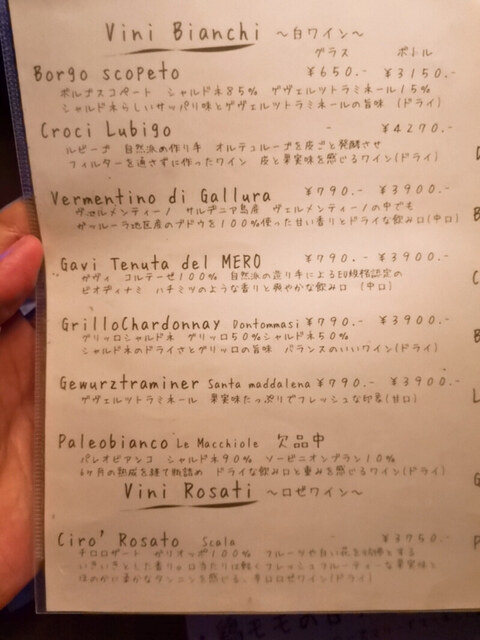 Vini Bianchi ～白ワイン～
グラス ボトル
Borgo scopeto ￥650.- ￥3150.-
ボルゴスコペート シャルドネ85% ゲヴェルツトラミネール15%
シャルドネらしいサッパリ味とゲヴェルツトラミネールの旨味 (ドライ)
Croci Lubigo ￥4270.-
ルビーゴ 自然派の作り手 オルテュルーゴを皮ごと発酵させ
フィルターを通さずに作ったワイン 皮と果実味を感じるワイン(ドライ)
Vermentino di Gallura ￥790.- ￥3900.-
ヴェルメンティーノ サルデニア島産 ヴェルメンティーノの中でも
ガッルーラ地区産のブドウを100%使った甘い香りとドライな飲み口(中口)
Gavi Tenuta del MERO ￥790.- ￥3900.-
ガヴィ コルテーゼ100% 自然派の造り手によるEU規格認定の
ビオディナミ ハチミツのような香りと爽やかな飲み口 (中口)
GrilloChardonnay Dontommasi ￥790.- ￥3900.-
グリッロシャルドネ グリッロ50%シャルドネ50%
シャルドネのドライさとグリッロの旨味 バランスのいいワイン(ドライ)
Gewurztraminer Santa maddalena ￥790.- ￥3900.-
ゲヴェルツトラミネール 果実味たっぷりでフレッシュな印象(甘口)
Paleobianco Le Macchiole 欠品中
パレオビアンコ シャルドネ90% ソービニオンブラン10%
6ヶ月の熟成を経て瓶詰め ドライな飲み口と重みを感じるワイン(ドライ)
Vini Rosati ～ロゼワイン～
Ciro' Rosato Scala ￥3750.-
チロロザート ガリオッポ100% フルーツや白い花を
いきいきとした香り。口当たりは軽くフレッシュフルーティーな果実味と
ほのかに豊かなタンニンを感じる、辛口ロゼワイン(ドライ)